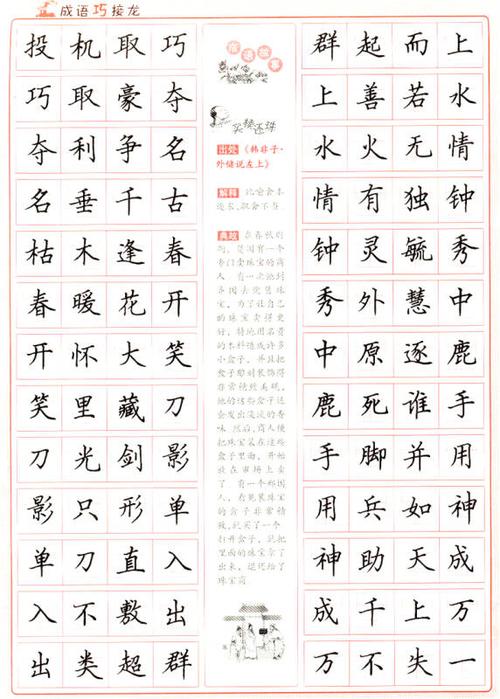 成语巧接龙
投机取巧
巧取豪夺
夺利争名
名垂千古
枯木逢春
春暖花开
开怀大笑
笑里藏刀
刀光剑影
影只形单
单刀直入
入不敷出
出类超群
成语故事
买椟还珠
出处《韩非子·
外储说左上》
解释 比喻舍本
逐末,取舍不当
典故 在春秋时
期,楚国有一个
专门卖珠宝的商
人,有一次他到
齐国去兜售珠
宝,为了让自己
的珠宝卖得更
好,特地用名贵
的木料造成许多
小盒子,并且把
盒子雕刻装饰得
非常精致美观,
他的这些盒子还
会发出淡淡的香
味.然后,商人便
把珠宝装在这些
盒子里面,开始
放在市场上卖
了.有一个郑国
人,看见装珠宝
的盒子非常精
致,就买了一个
打开盒子,就把
里面的珠宝拿了
出来,退还给了
珠宝商
群起而上
上善若水
水火无情
情有独钟
钟灵毓秀
秀外慧中
中原逐鹿
鹿死谁手
手脚并用
用兵如神
神助天成
成千上万
万不失一